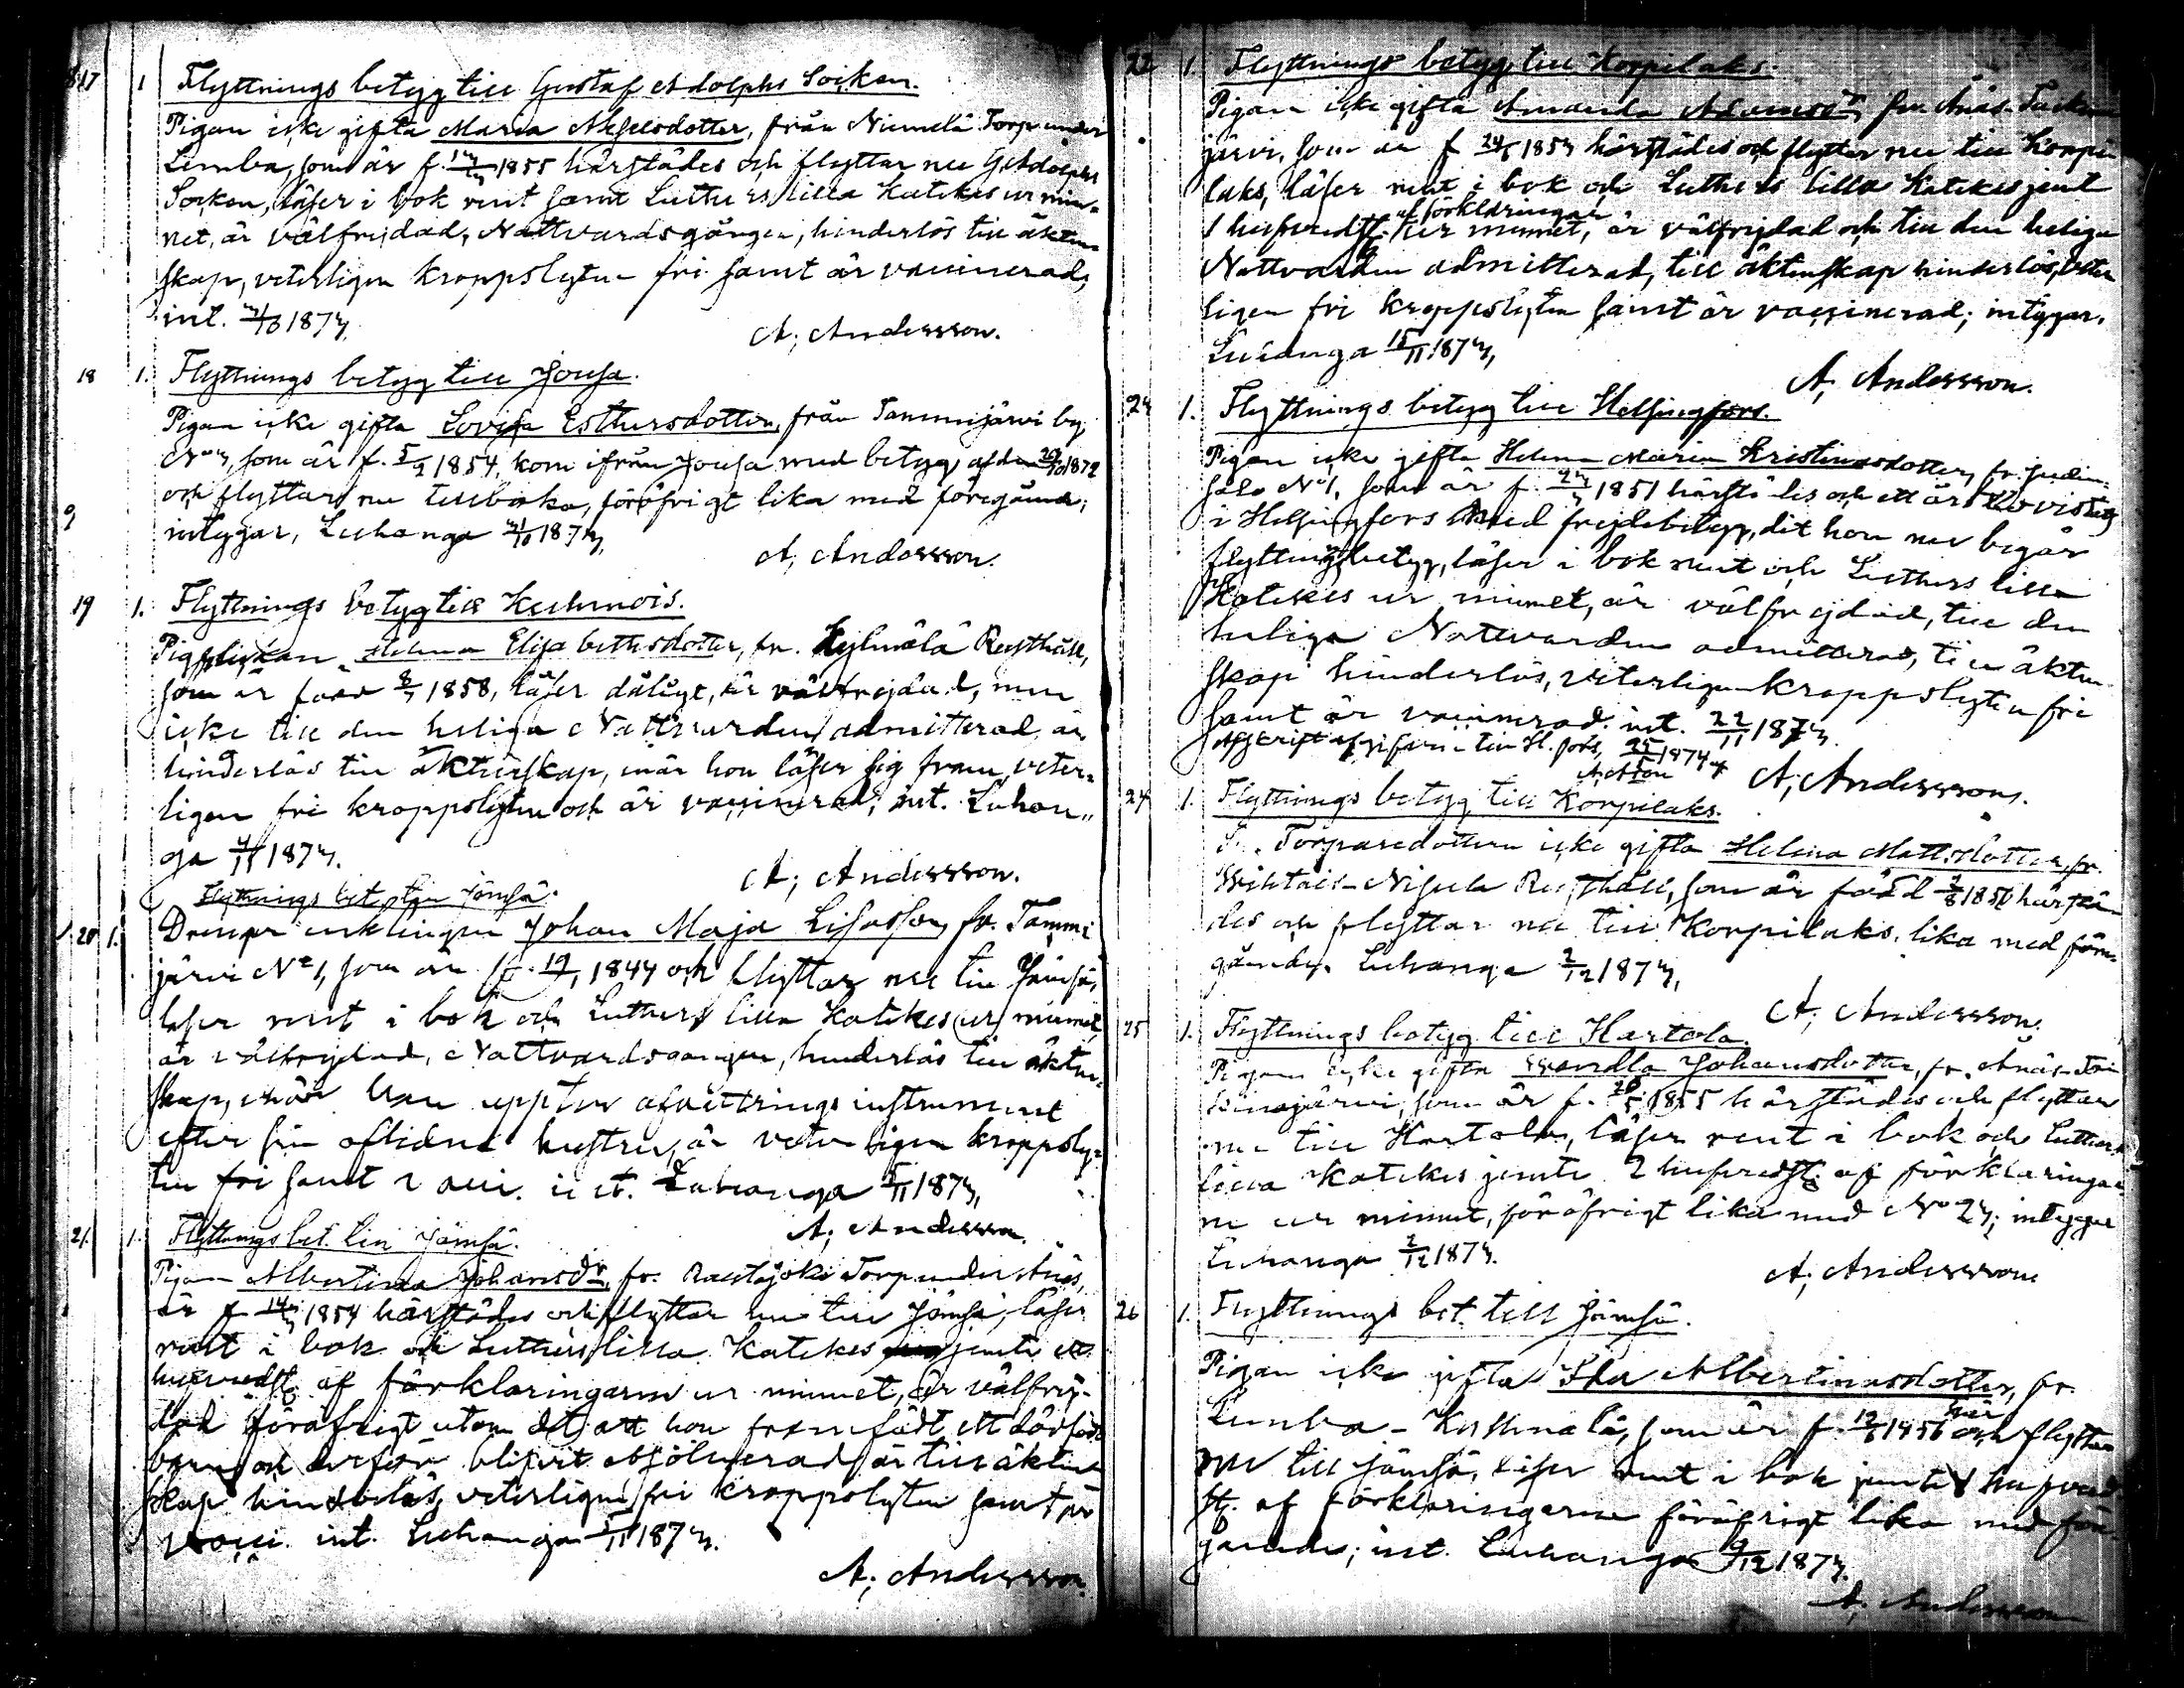 17 1 Flyttnings betyg till Gustaf Adolphs Socken.
Pigan icke gifta Maria , från Niemelä Torp under
Limba, som är f. 1855 härstädes och flyttar nu
Socken, läser i bok rent samt Luthers lilla Katekes ur min-
net, är välfrejdad, Nattvardsgången, hinderlös till äkten-
skap, veterligen kroppslyten fri samt är vaccinerad;
int. 1873.
A; Andersson.
18 1. Flyttnings betyg till Joutsa.
Pigan icke gifta Lovisa Esthersdotter, från Tammijärvi by
som är f. 5/9 1854, kom ifrån Joutsa med betyg af den 1872
och flyttar nu tillbaka, föröfrigt lika med föregående;
intygar, Luhanga 1873,
A; Andersson.
19 1. Flyttnings betyg till Kuhmois.
Pigflickan Helena Elisabethsdotter, fr. Rusthåll,
som är född 1858, läser dåligt, är välfrejdad, men
icke till den heliga Nattvarden admitterad, är
hinderlös till äktenskap, när hon läser sig fram, veter-
ligen fri kroppslyten och är vaccinerad; int. Luhan-
ga 1873.
A; Andersson.
Flyttnings bet. till Jämsä.
20 1. Drengen enklingen Johan Maja Lisasson, fr. Tammi
järvi No 1, som är f. 19/1 1844 och flyttar nu till Jämsä,
läser rent i bok och Luthers lilla Katekes ur minnet,
är välfrejdad, Nattvardsgången, hinderlös till äkten-
skap, när han uppter afvittrings instrument
efter sin aflidna hustru, är veterligen kroppsly-
ten fri samt vacci. int. Luhanga 1873,
A; Andersson.
21. 1. Flyttnings bet. till Jämsä.
Pigan Albertina Johansdr, fr. Torp under Anäs,
är f 1854 härstädes och flyttar nu till Jämsä, läser
rent i bok och Luthers lilla Katekes jemte ett
hufvudst. af förklaringarne ur minnet, är välfrej-
dad föröfrigt utom det att hon framfödt ett dödfödt
barn och derför blifvit absolverad, är till äkten-
skap hinderlös, veterligen fri kroppslyten samt är
vacci. int. Luhanga 1873.
A; Andersson.
22 1. Flyttnings betyg till Korpilaks.
Pigan icke gifta Amanda Adamsdr fr. Anäs
järvi, som är f 1853 härstädes och flyttar nu till Korpi-
laks, läser rent i bok och Luthers lilla Katekes jemt
1 hufvudst. af förklaringar ur minnet, är välfrejdad och till den heliga
Nattvarden admitterad, till äktenskap hinderlös, veter
ligen fri kroppslyten samt är vaccinerad; intygar.
Luhanga 15/11 1873,
A; Andersson.
1. Flyttnings betyg till Helsingfors.
Pigan icke gifta Helena Maria Kristinasdotter, fr.
No 1, som är f. 1851 härstädes och ett år
i Helsingfors med frejdebetyg, dit hon nu begär
flyttningsbetyg, läser i bok rent och Luthers lilla
Katekes ur minnet, är välfrejdad, till den
heliga Nattvarden admitterad, till äkten
skap hinderlös, veterligen kroppslyten fri
samt är vaccinerad. int. 22/11 1873.
Afskrift af gifven till H. fors, 1874
A; Andersson.
24 1. Flyttnings betyg till Korpilaks.
Torparedottern icke gifta Helena Mattsdotter, fr.
Nisula Rusthåll, som är född 1856 härstä-
des och flyttar nu till Korpilaks, lika med före-
gående. Luhanga 2/12 1873,
A; Andersson.
25 1. Flyttnings betyg till Hartola.
Pigan icke gifta Wendla Johansdotter, fr. Anäs
som är f. 1855 härstädes och flyttar
nu till Hartola, läser rent i bok och Luthers
lilla Katekes jemte 2 hufvudst. af förklaringar
ne ur minnet, föröfrigt lika med No 23; intygar
Luhanga 2/12 1873.
A; Andersson
26 1. Flyttnings bet. till Jämsä.
Pigan icke gifta Ida Albertinasdotter, fr.
som är f. 1856 här och flyttar
nu till Jämsä, läser rent i bok jemte hufvud
st. af förklaringarne föröfrigt lika med före
gående; int. Luhanga 9/12 1873.
A; Andersson